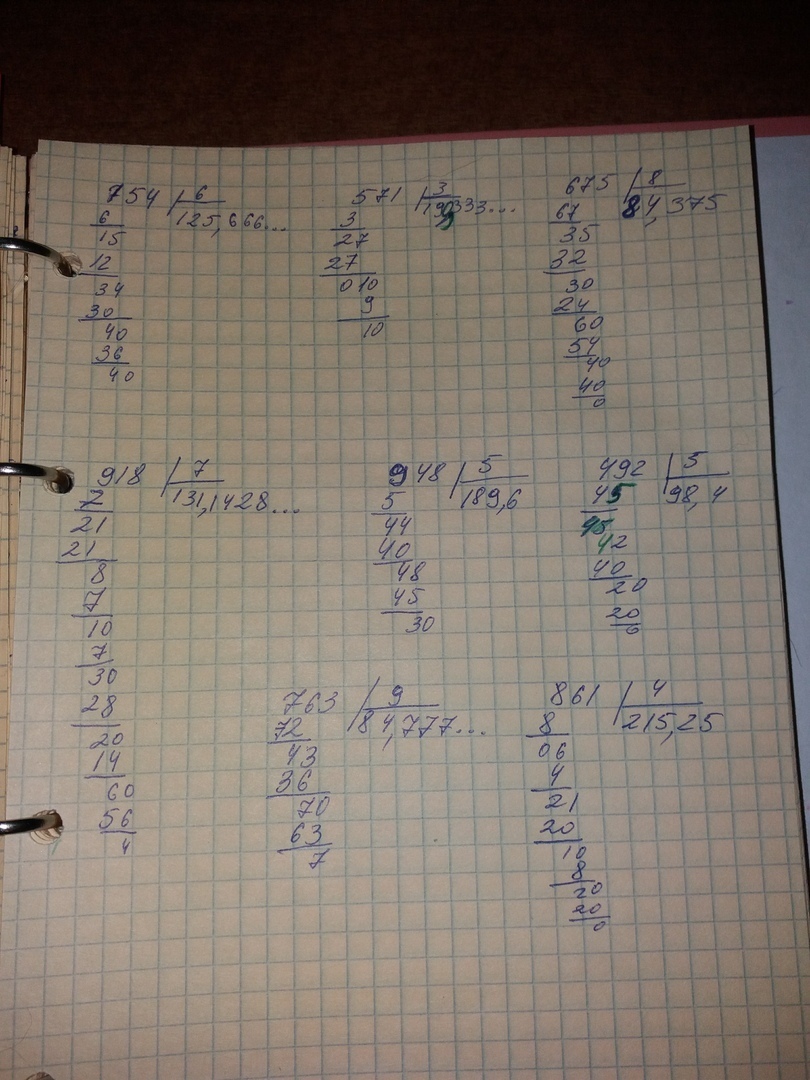 754 6
6 125,666...
15
12
34
30
40
36
40
571 3
3 190,333...
27
27
010
9
10
675 8
67 84,375
35
32
30
24
60
54
40
40
0
918 7
7 131,1428...
21
21
8
7
10
7
30
28
20
14
60
56
4
948 5
5 189,6
44
40
48
45
30
492 5
45 98,4
45
42
40
20
20
0
763 9
72 84,777...
43
36
70
63
7
861 4
8 215,25
06
4
21
20
10
8
20
20
0